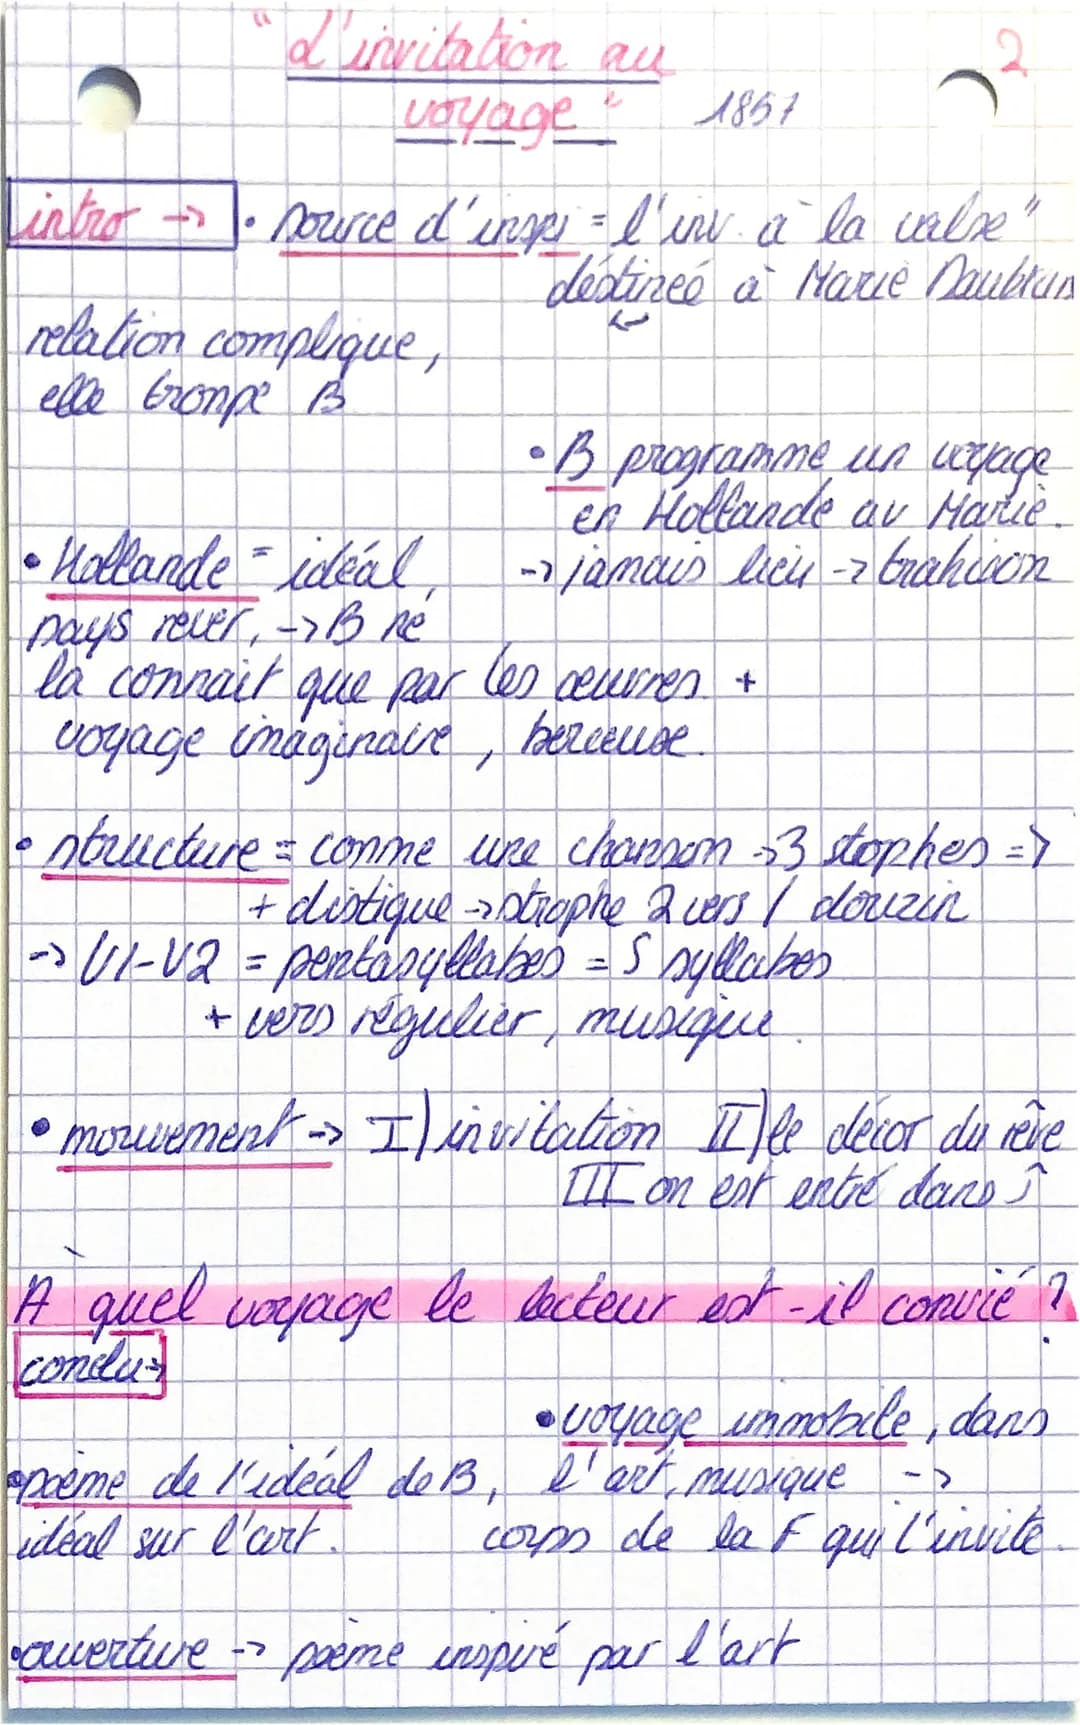 "L'invitation au
2
voyage" 1857
intro -> • source d'inspi = l'inv. à la valse"
déstinée à Marie Daubrun
relation complique,
elle trompe B
• B programme un voyage
en Hollande av Marie.
• Hollande = idéal, -> jamais lieu -> trahison
pays rever, -> B ne
la connait que par les oeuvres. +
voyage imaginaire, berceuse.
• structure = comme une chanson -> 3 stophes =>
+ distique -> strophe 2 vers / douzin
-> V1-V2 = pentasyllabes = 5 syllabes
+ vers régulier, musique.
• mouvement -> I) invitation II) le décor du rêve
III on est entré dans ↑
À quel voyage le lecteur est-il convié ?
conclu ->
• voyage immobile, dans
• poème de l'idéal de B, l'art, musique ->
idéal sur l'art. corps de la F qui l'invite.
• ouverture -> poème inspiré par l'art